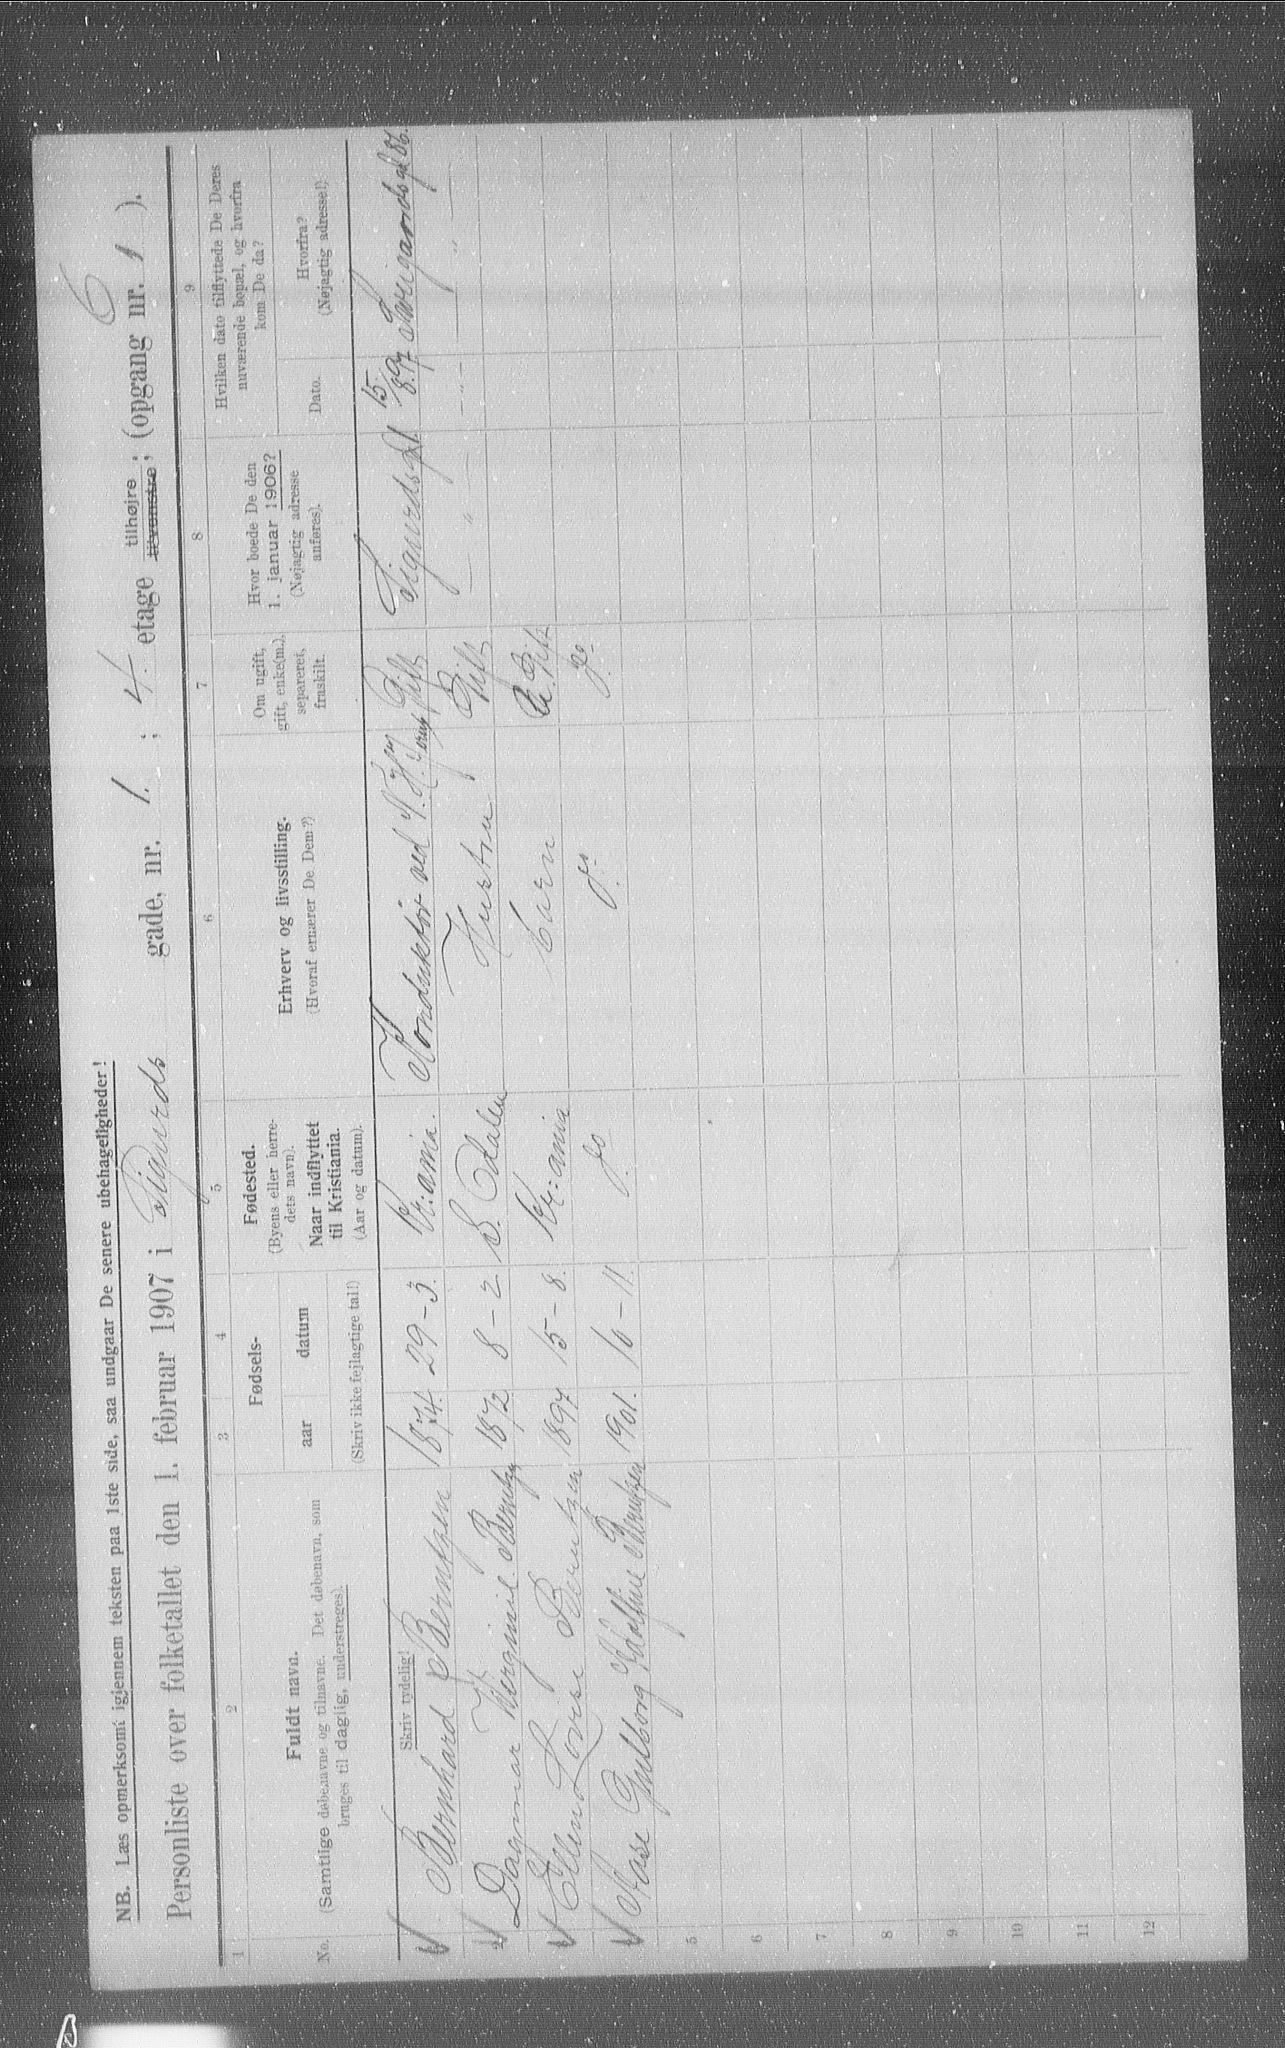 NB. Læs opmerksomt igjennem teksten paa 1ste side, saa undgaar De senere ubehageligheder!
6
Personliste over folketallet den 1. februar 1907 i Sigurds gade, nr. 1. ; 4. etage tilhøjre ; tilvenstre ; (opgang nr. 1 ).
1 2 3 4 5 6 7 8 9
No.
Fuldt navn.
(Samtlige døbenavne og tilnavne. Det døbenavn, som
bruges til daglig, understreges).
Skriv tydelig!
Fødsels-
aar datum
(Skriv ikke fejlagtige tal!)
Fødested.
(Byens eller herre-
dets navn).
Naar indflyttet
til Kristiania.
(Aar og datum).
Erhverv og livsstilling.
(Hvoraf ernærer De Dem?)
Om ugift,
gift, enke(m.),
separeret,
fraskilt.
Hvor boede De den
1. januar 1906?
(Nøjagtig adresse
anføres).
Hvilken dato tilflyttede De Deres
nuværende bopæl, og hvorfra
kom De da?
Dato.
Hvorfra?
(Nøjagtig adresse!)
Bernhard Berntzen 1874. 29-3. Kr:ania. Konduktør ved Gift Sigurdsgd 1. 15/8.97
2 Dagmar Berntzen 1872 8-2 S. Odalen Hustru Gift " " "
Ellen Berntzen 1897 15-8. Kr:ania barn U. Gift
Aase Gulborg Berntzen 1901. 10-11. do do do
5
6
7
8
9
10
11
12